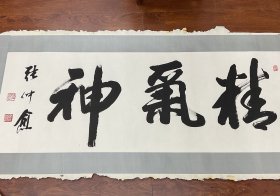 精氣神
張仲愈